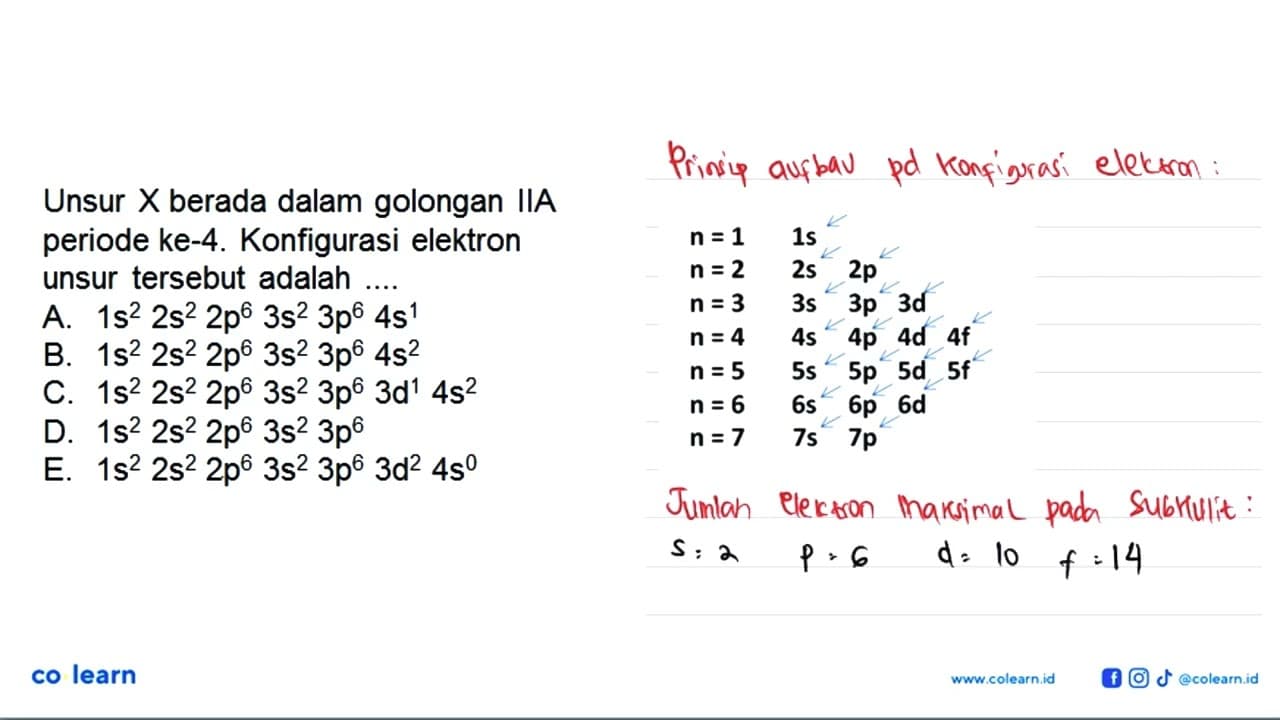 Unsur X berada dalam golongan IIA
periode ke-4. Konfigurasi elektron
unsur tersebut adalah ....
A. 1s² 2s² 2p⁶ 3s² 3p⁶ 4s¹
B. 1s² 2s² 2p⁶ 3s² 3p⁶ 4s²
C. 1s² 2s² 2p⁶ 3s² 3p⁶ 3d¹ 4s²
D. 1s² 2s² 2p⁶ 3s² 3p⁶
E. 1s² 2s² 2p⁶ 3s² 3p⁶ 3d² 4s⁰
Prinsip aufbau pd konfigurasi elektron :
n = 1 1s
n = 2 2s 2p
n = 3 3s 3p 3d
n = 4 4s 4p 4d 4f
n = 5 5s 5p 5d 5f
n = 6 6s 6p 6d
n = 7 7s 7p
Jumlah elektron maksimal pada subkulit :
s = 2 p = 6 d = 10 f = 14
co learn
www.colearn.id @colearn.id